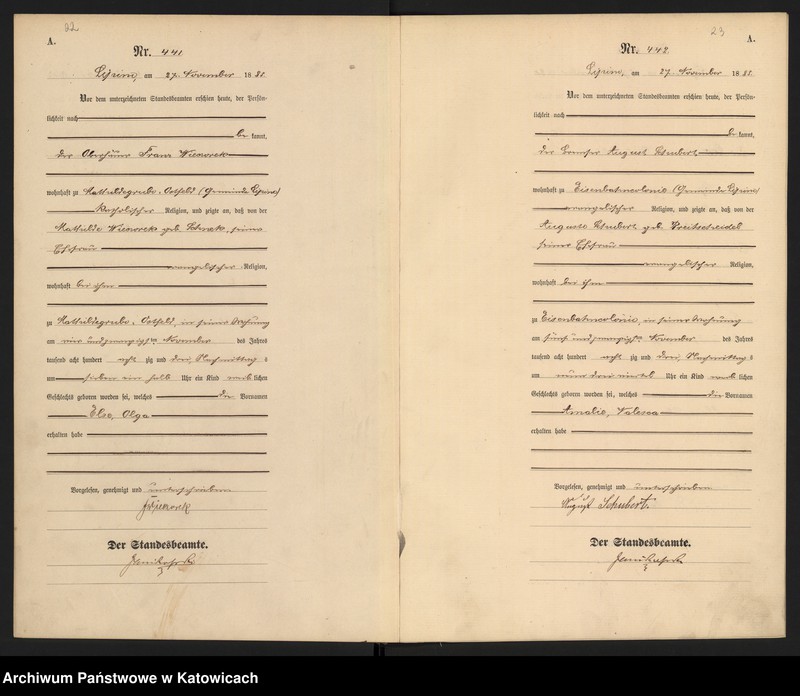 22
A.
Nr. 441.
Lipine, am 27. November 1883.
Vor dem unterzeichneten Standesbeamten erschien heute, der Persön-
lichkeit nach
be kannt,
der Oberhäuer Franz Wienorek
wohnhaft zu Mathildegrube-Ostfeld (Gemeinde Lipine)
katholischer Religion, und zeigte an, daß von der
Mathilde Wienorek geb. seiner
Ehefrau
evangelischer Religion,
wohnhaft bei ihm
zu Mathildegrube-Ostfeld, in seiner Wohnung
am vier und zwanzigsten November des Jahres
tausend acht hundert acht zig und drei, Nachmittags
um sieben ein halb Uhr ein Kind weib lichen
Geschlechts geboren worden sei, welches die Vornamen
Else, Olga
erhalten habe
Vorgelesen, genehmigt und unterschrieben
Wienorek
Der Standesbeamte.
23
A.
Nr. 442.
Lipine, am 27. November 1883.
Vor dem unterzeichneten Standesbeamten erschien heute, der Persön-
lichkeit nach
be kannt,
der August Schubert
wohnhaft zu Eisenbahncolonie (Gemeinde Lipine)
evangelischer Religion, und zeigte an, daß von der
Auguste Schubert geb. Breitscheidel
seiner Ehefrau
evangelischer Religion,
wohnhaft bei ihm
zu Eisenbahncolonie, in seiner Wohnung
am fünf und zwanzigsten November des Jahres
tausend acht hundert acht zig und drei, Nachmittags
um neun drei viertel Uhr ein Kind weib lichen
Geschlechts geboren worden sei, welches die Vornamen
Amalie, Valesca
erhalten habe
Vorgelesen, genehmigt und unterschrieben
August Schubert.
Der Standesbeamte.
Archiwum Państwowe w Katowicach